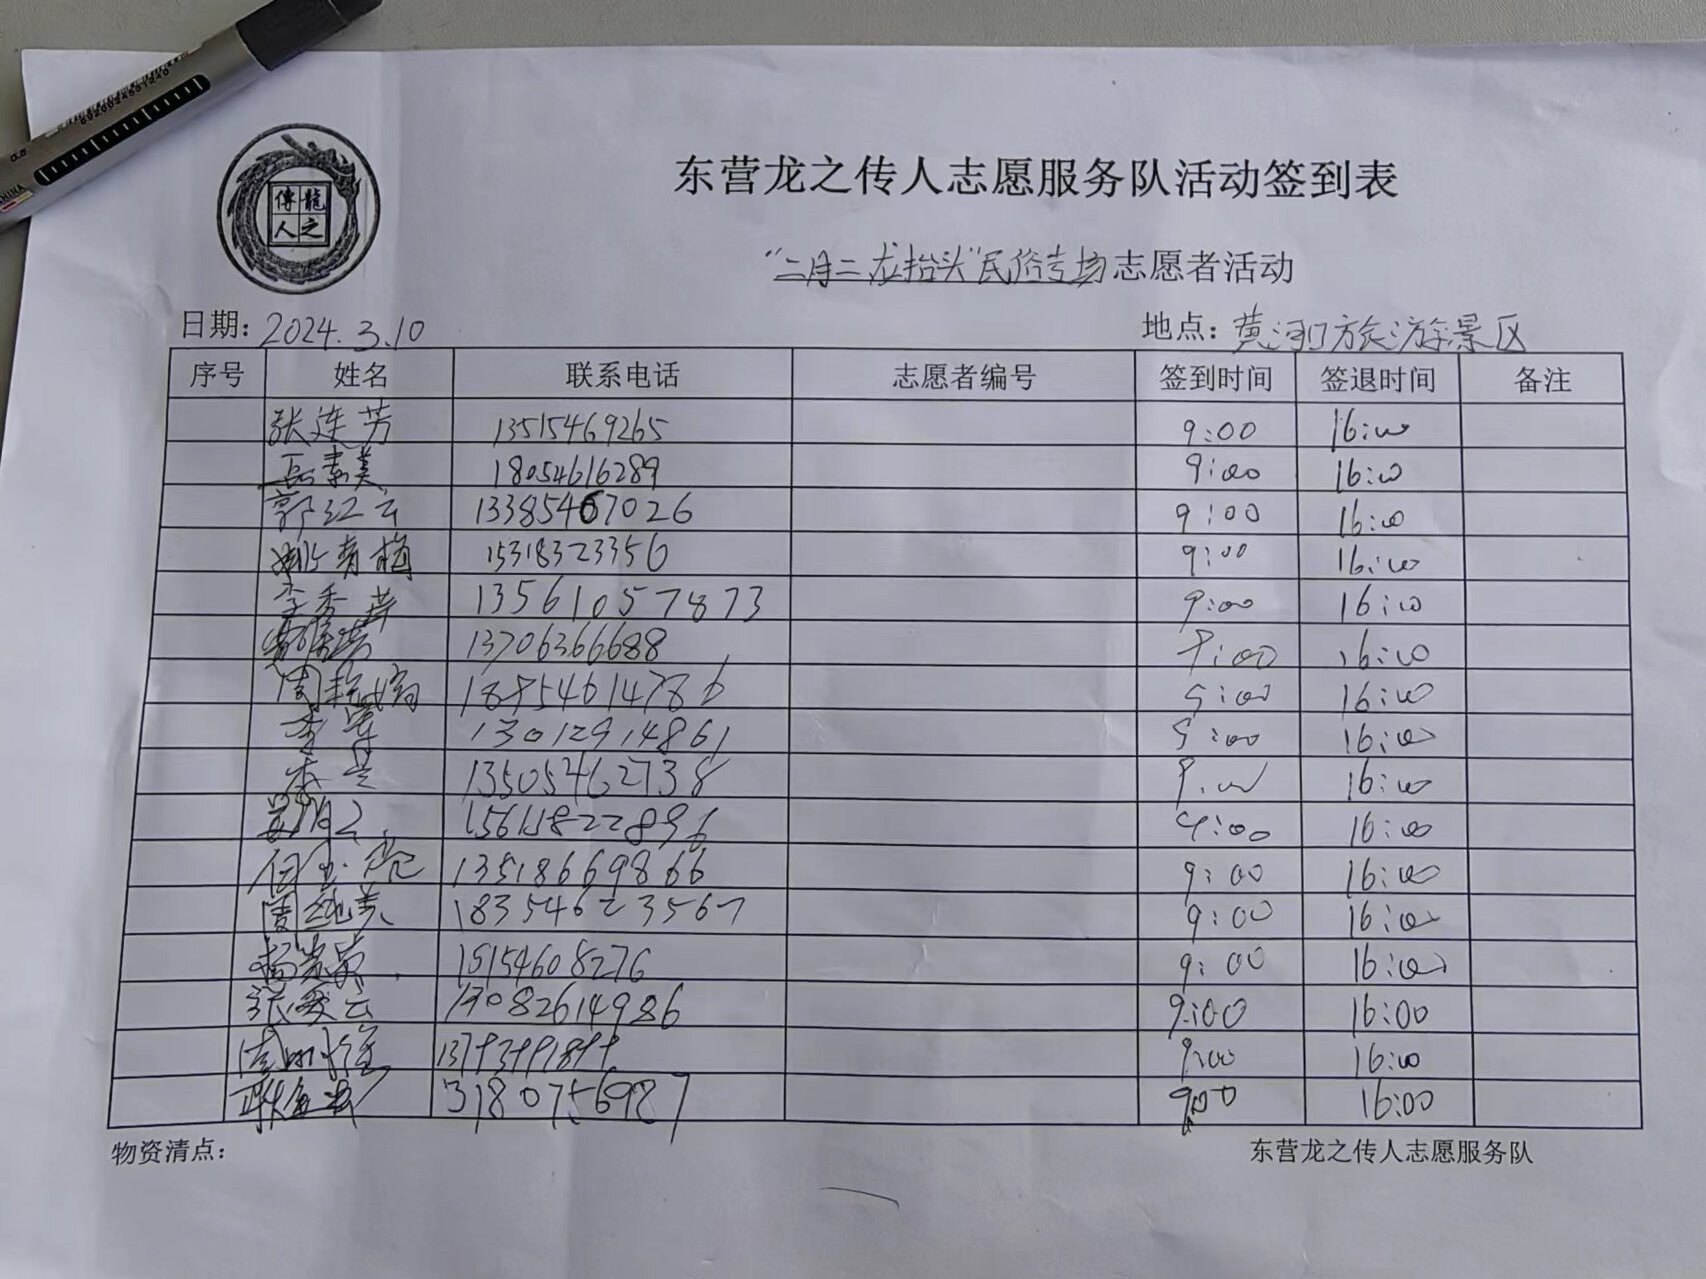 龍之傳人
东营龙之传人志愿服务队活动签到表
"二月二龙抬头"民俗专场志愿者活动
日期: 2024.3.10 地点: 黄河口旅游景区
序号 姓名 联系电话 志愿者编号 签到时间 签退时间 备注
张连芳 13515469265 9:00 16:00
岳素美 18054616289 9:00 16:00
郭红云 13385467026 9:00 16:00
姚青梅 15318323356 9:00 16:00
李秀萍 13561057873 9:00 16:00
13706366688 9:00 16:00
周 18954614786 9:00 16:00
李军 13012914861 9:00 16:00
13505462738 9:00 16:00
15615822896 9:00 16:00
任 13518669866 9:00 16:00
周纯美 18354623567 9:00 16:00
杨 英 15154608276 9:00 16:00
张爱云 19082614986 9:00 16:00
周 9:00 16:00
耿 9:00 16:00
物资清点: 东营龙之传人志愿服务队